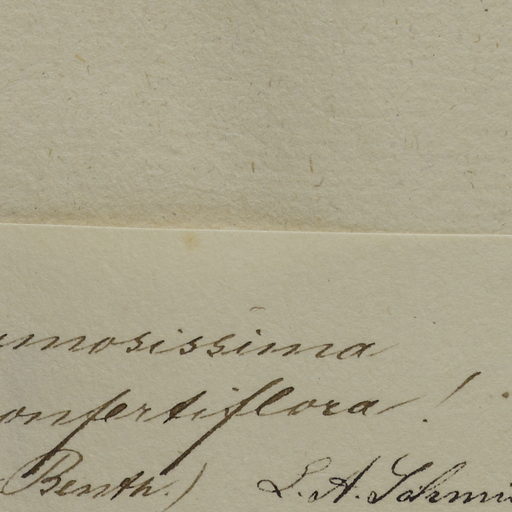 amosissima
onfertiflora !
Benth.) L. A. Schmi